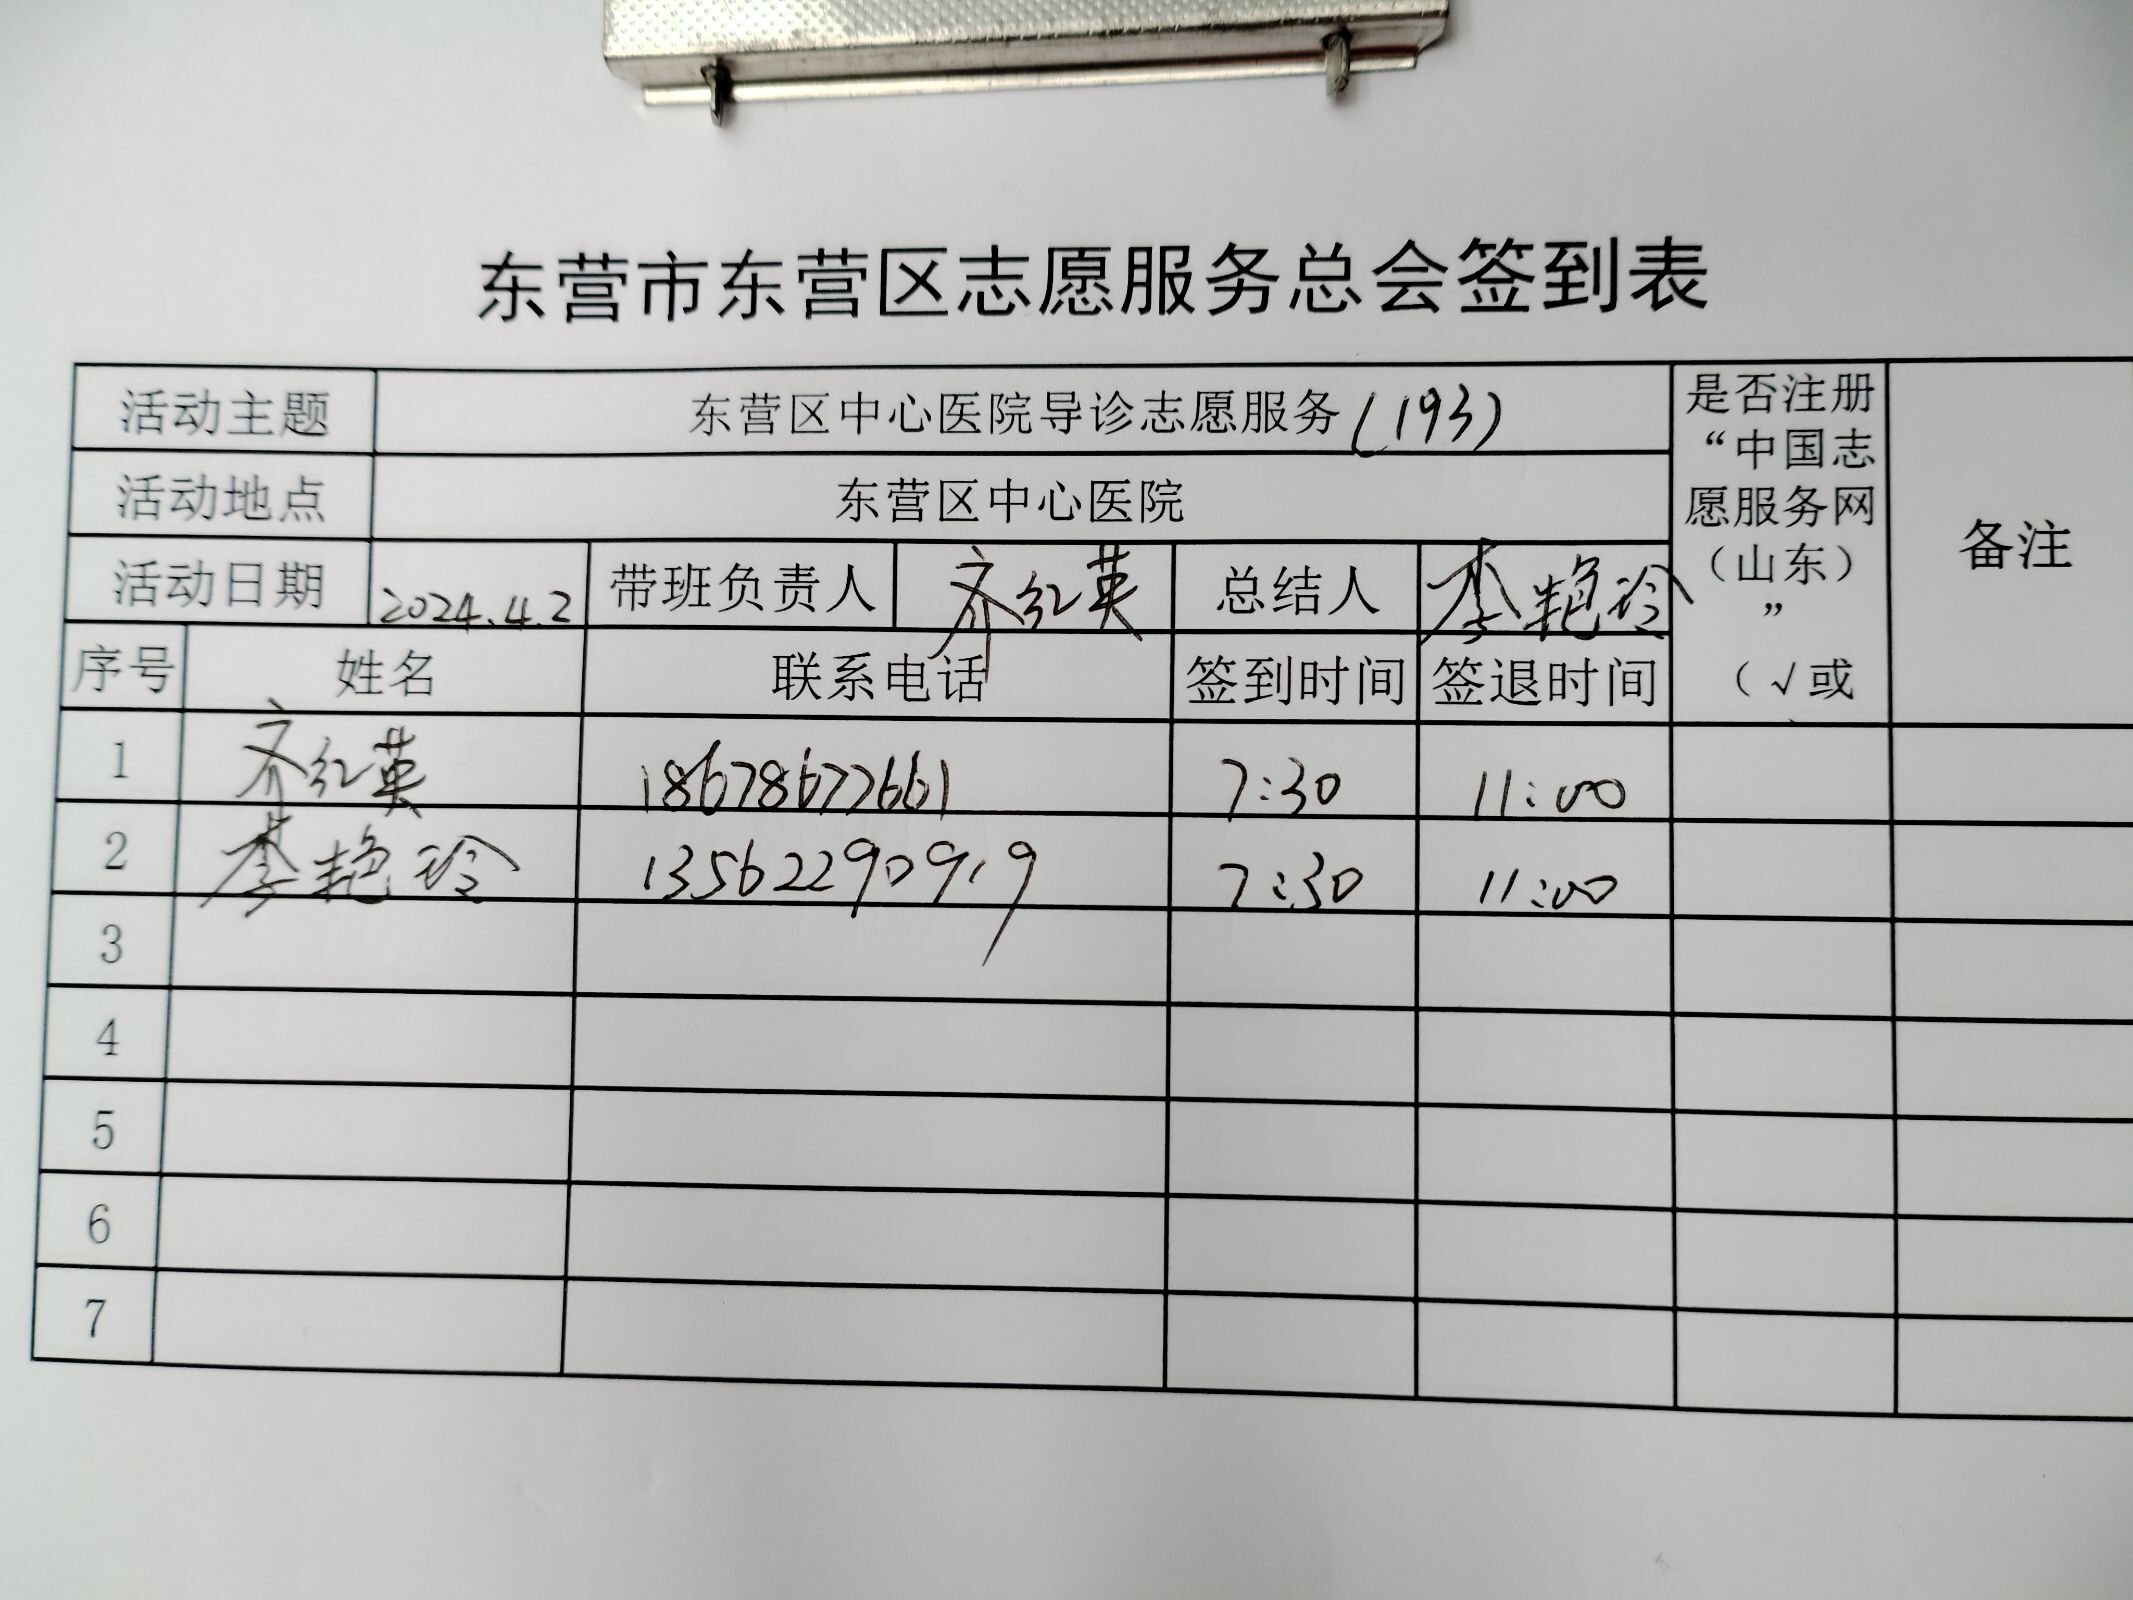 东营市东营区志愿服务总会签到表
活动主题 东营区中心医院导诊志愿服务(193)
活动地点 东营区中心医院
活动日期 2024.4.2 带班负责人 齐红英 总结人 李艳玲
是否注册
“中国志
愿服务网
（山东）
”
（√或
备注
序号 姓名 联系电话 签到时间 签退时间
1 齐红英 18678677661 7:30 11:00
2 李艳玲 13562290919 7:30 11:00
3
4
5
6
7